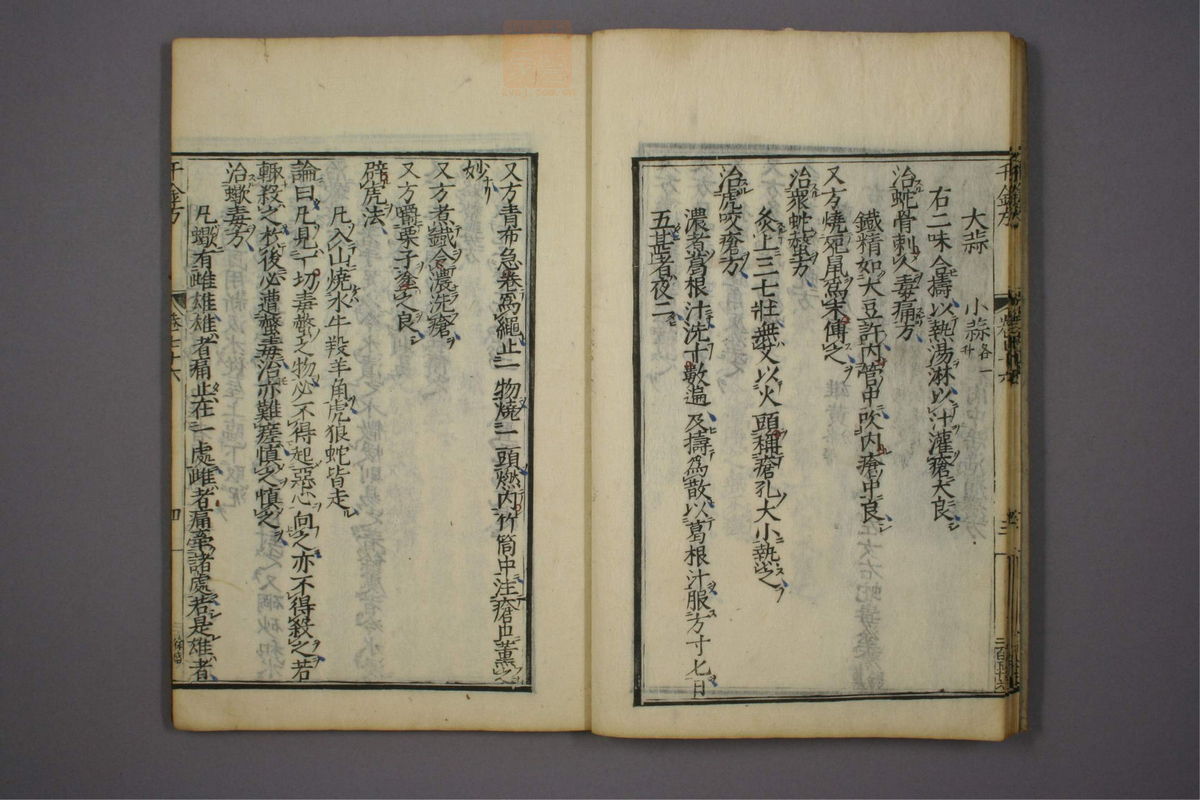 大蒜　小蒜各一升
右二味合擣以熱湯淋以汁灌瘡大良
治蛇骨刺人毒痛方
鐵精如大豆許内管中吹内瘡中良
又方燒死鼠爲末傅之
治衆蛇螫方
灸上三七壯無艾以火頭稱瘡孔大小熱之
治虎咬瘡方
濃煮葛根汁洗十數遍及擣爲散以葛根汁服方寸匕日
五甚者夜二
又方青布急卷爲繩止一物燒一頭燃内竹筒中注瘡口薰之
妙
又方煮鐵令濃洗瘡
又方嚼栗子塗之良
辟虎法
凡入山燒水牛羖羊角虎狼蛇皆走
論曰凡見一切毒螫之物必不得起惡心向之亦不得殺之若
輙殺之於後必遭螫毒治亦難瘥慎之慎之
治蠍毒方
凡蠍有雌雄雄者痛止在一處雌者痛牽諸處若是雄者
千金方
四